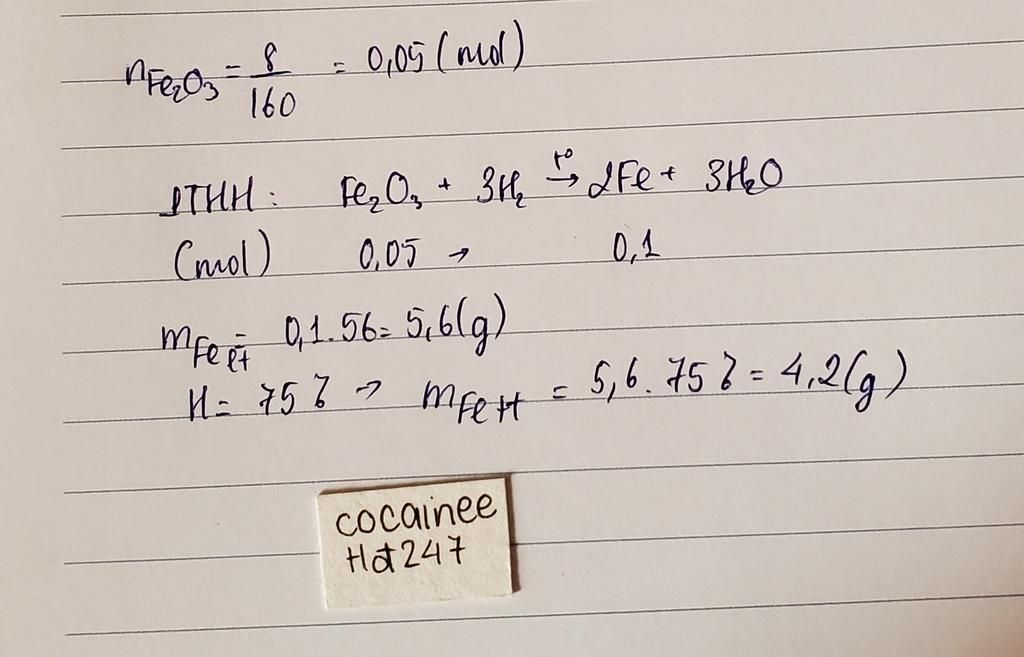 nFe2O3 = 8/160 = 0,05 (mol)
PTHH : Fe2O3 + 3H2 t° → 2Fe + 3H2O
(mol) 0,05 → 0,1
mFe lt = 0,1.56 = 5,6(g)
H = 75% → mFe tt = 5,6.75% = 4,2(g)
cocainee
Hót247